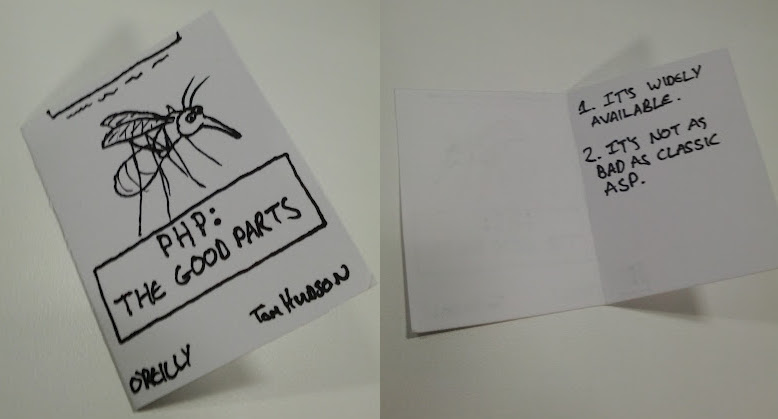 PHP:
THE GOOD PARTS
Tom Hudson
O'REILLY
1. IT'S WIDELY
AVAILABLE.
2. IT'S NOT AS
BAD AS CLASSIC
ASP.